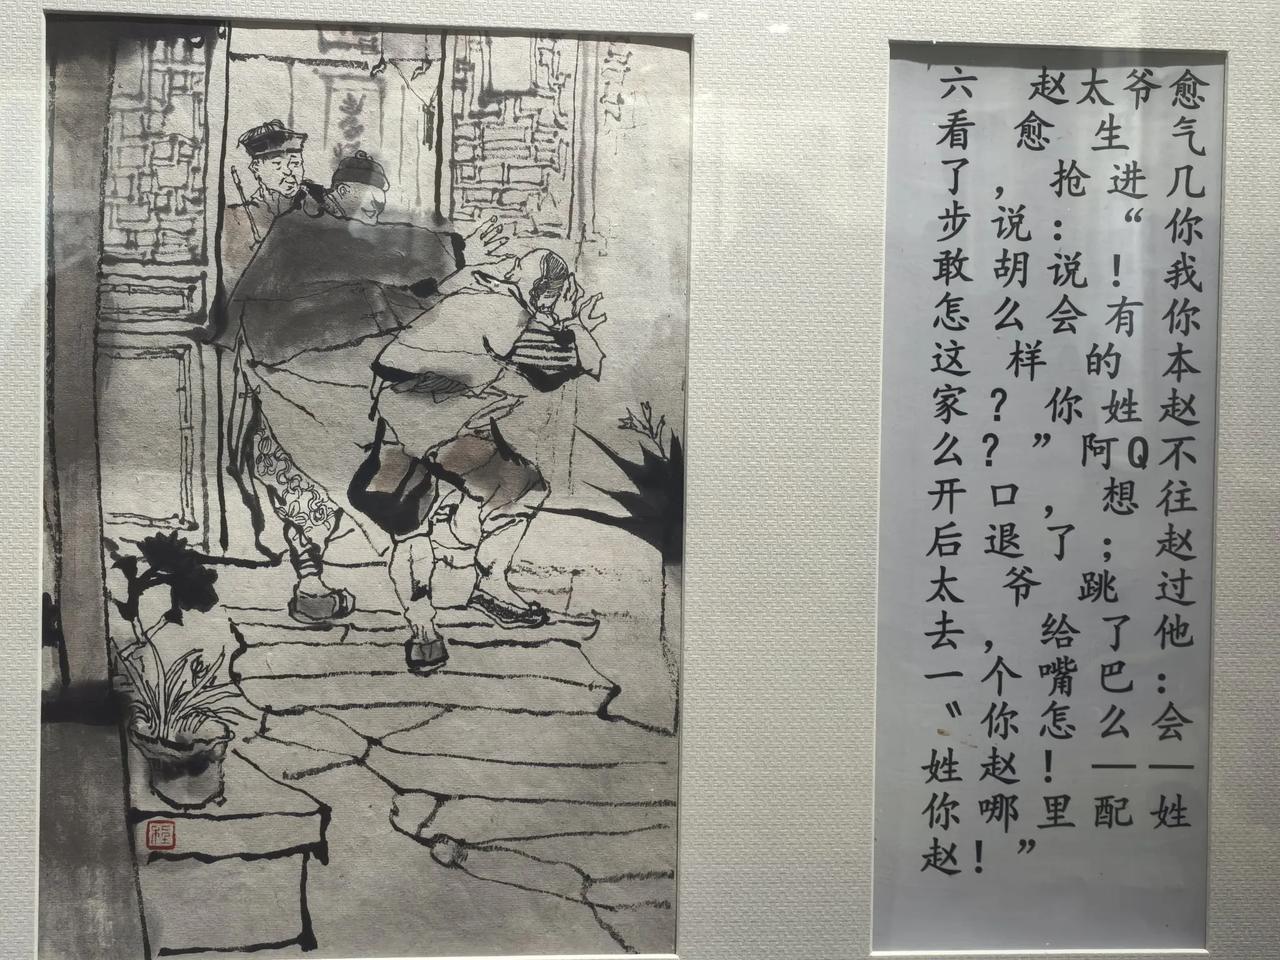 六 赵太爷愈
看愈生气
了，抢进几
步说：“你
敢胡说！我
怎么会有你
这样的本
家？你姓赵
么？”阿Q不
开口，想往
后退了；赵
太爷跳过
去，给了他
一个嘴巴：
〝你怎么会
姓赵！——
你哪里配姓
赵！”